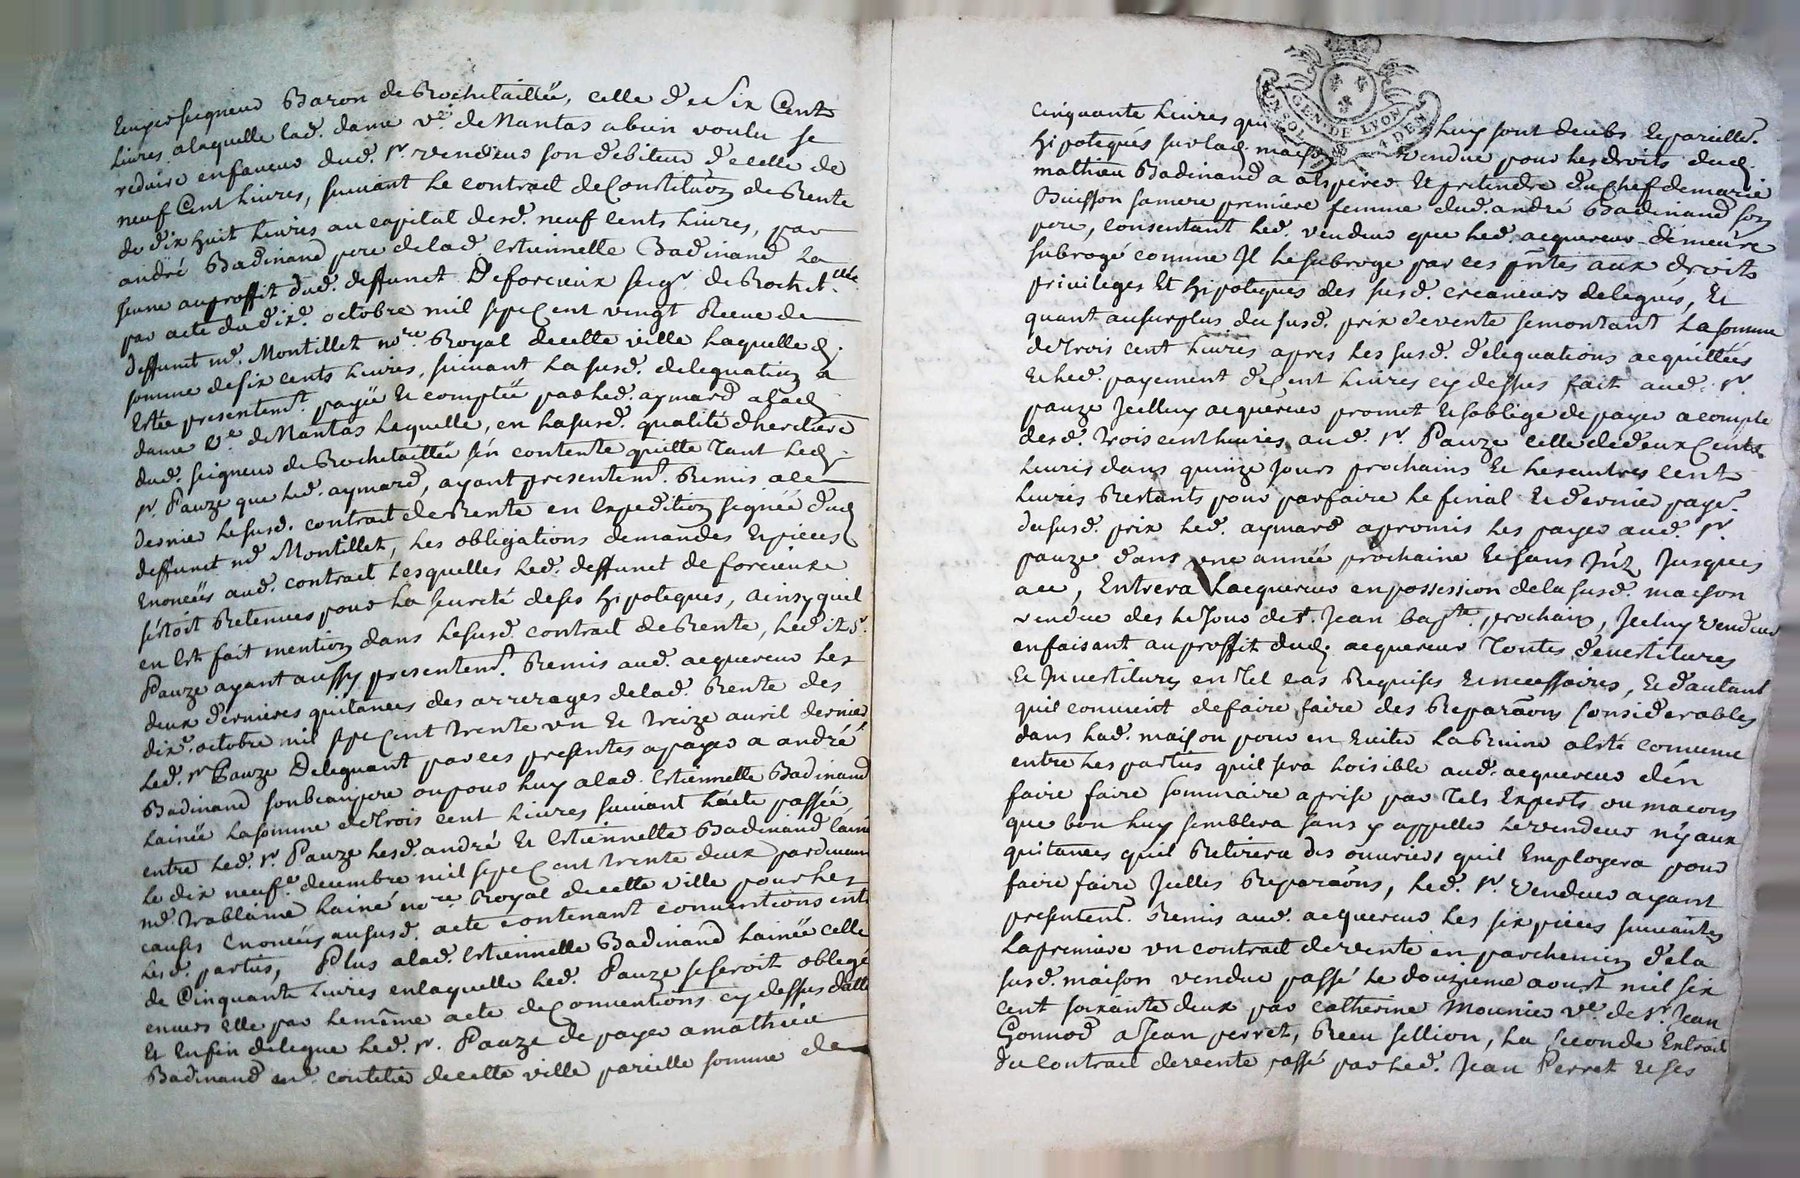 seigneur Baron de Rochetaillée, celle de Six Cent
Livres a laquelle lad. dame ve. de Nantas a bien voulu se
reduire en faveur dud. sr. vendeur son debiteur de celle de
neuf Cent Livres, suivant le contract de Constitution de Rente
de dix huit Livres au capital desd. neuf cents Livres, par
andré Badinand pere de lad. Estiennelle Badinand la
jeune au proffit dud. deffunct Deforcieux seigr. de Rochet.
par acte du dixe. octobre mil sept Cent vingt Receu de
deffunt me. Montillet nore. Royal de cette ville Laquelle d.
somme de six cents Livres, suivant la susd. delegation a
Estée presentemt. payée et comptée par led. aymard a lad.
dame ve. de Nantas Laquelle, en la susd. qualité d'heritiere
dud. seigneur de Rochetaillée s'en contente quitte Tant led.
sr. Pauze que led. aymard, ayant presentemt. Remis a ce
dernier le susd. contract de Rente en Expedition signée dud.
deffunct me. Montillet, les obligations demandes et pieces
Enoncées aud. contract lesquelles led. deffunct deforcieux
s'étoit Retenues pour la seureté de ses hipoteques, ainsy qu'il
en est fait mention dans le susd. contract de Rente, led. sr.
Pauze ayant aussy presentemt. Remis aud. acquereur les
deux dernieres quitances des arrerages de lad. Rente des
dixe. octobre mil sept Cent trente un et treize avril dernier
led. sr. Pauze Deleguant par ces presentes a payer a andré
Badinand son beaupere ou pour luy a lad. Estiennelle Badinand
lainée la somme de Trois Cent Livres suivant l'acte passé
entre led. sr. Pauze lesd. andré et Estiennelle Badinand lainée
le dix neufe. decembre mil sept Cent trente deux pardevant
me. trablaine laine nore. Royal de cette ville pour les
causes Enoncées au susd. acte contenant conventions entre
lesd. partis, Plus a lad. Estiennelle Badinand lainée celle
de Cinquante Livres en laquelle led. Pauze se seroit obligé
envers Elle par le même acte de Conventions cy dessus datté
Et Enfin delegue led. sr. Pauze de payer a mathieu
Badinand me. coutelier de cette ville pareille somme de
Cinquante Livres qui luy sont deubs Et pareillet.
hipotequés sur lad. maison vendue pour les droits dud.
mathieu Badinand a Esperer Et pretendre du Chef de marie
Buisson sa mere premiere femme dud. andré Badinand son
pere, consentant led. vendeur que led. acquereur demeure
subrogé comme Il le subroge par ces pntes aux droits
privileges Et hipoteques des susd. creanciers delegués, Et
quant au surplus du susd. prix de vente se montant la somme
de Trois cent Livres apres les susd. deleguations acquittées
Et led. payement de Cent Livres cy dessus fait aud. sr.
pauze Jcelluy acquereur promet Et s'oblige de payer a compte
desd. trois cent Livres aud. sr. Pauze celle de deux Cents
Livres dans quinze Jours prochains Et les autres cent
Livres Restants pour parfaire le final Et dernier paye.
du susd. prix led. aymard a promis les payer aud. sr.
pauze dans une année prochaine Et sans Jntz Jusques
a ce, Entrera L'acquereur en possession de la susd. maison
vendue des le Jour de st. Jean bapte. prochain, Jcelluy vendeur
en faisant au proffit dud. acquereur Toutes devestitures
Et Jnvestitures en tel cas Requises Et necessaires, Et d'autant
quil convient de faire faire des Reparaons Considerables
dans lad. maison pour en Eviter la Ruine a Esté convenu
entre les parties quil sera loisible aud. acquereur d'en
faire faire sommaire aprise par tels Experts ou macons
que bon luy semblera sans y appeller le vendeur n'y aux
quitances quil Retirera des ouvriers quil Employera pour
faire faire Jcelles Reparaons, led. sr. vendeur ayant
presentemt. Remis aud. acquereur les six pieces suivantes
la premiere un contract de vente en parchemin de la
susd. maison vendue passé le douzieme aoust mil six
cent soixante deux par Catherine Mounier ve. de sr. Jean
Gonnod a Jean perret, Receu sellion, la seconde Extrait
du contract de vente passé par led. Jean Perret Et ses
GEN. DE LYON